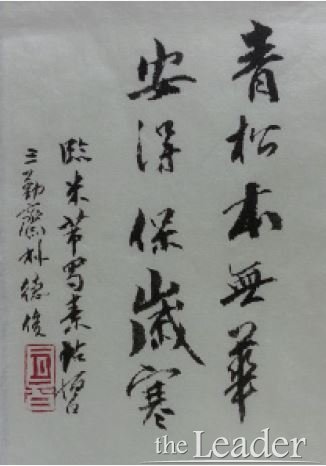 青松本無華
安得保歲寒
臨米芾蜀素帖
三勤齋朴德俊
the Leader